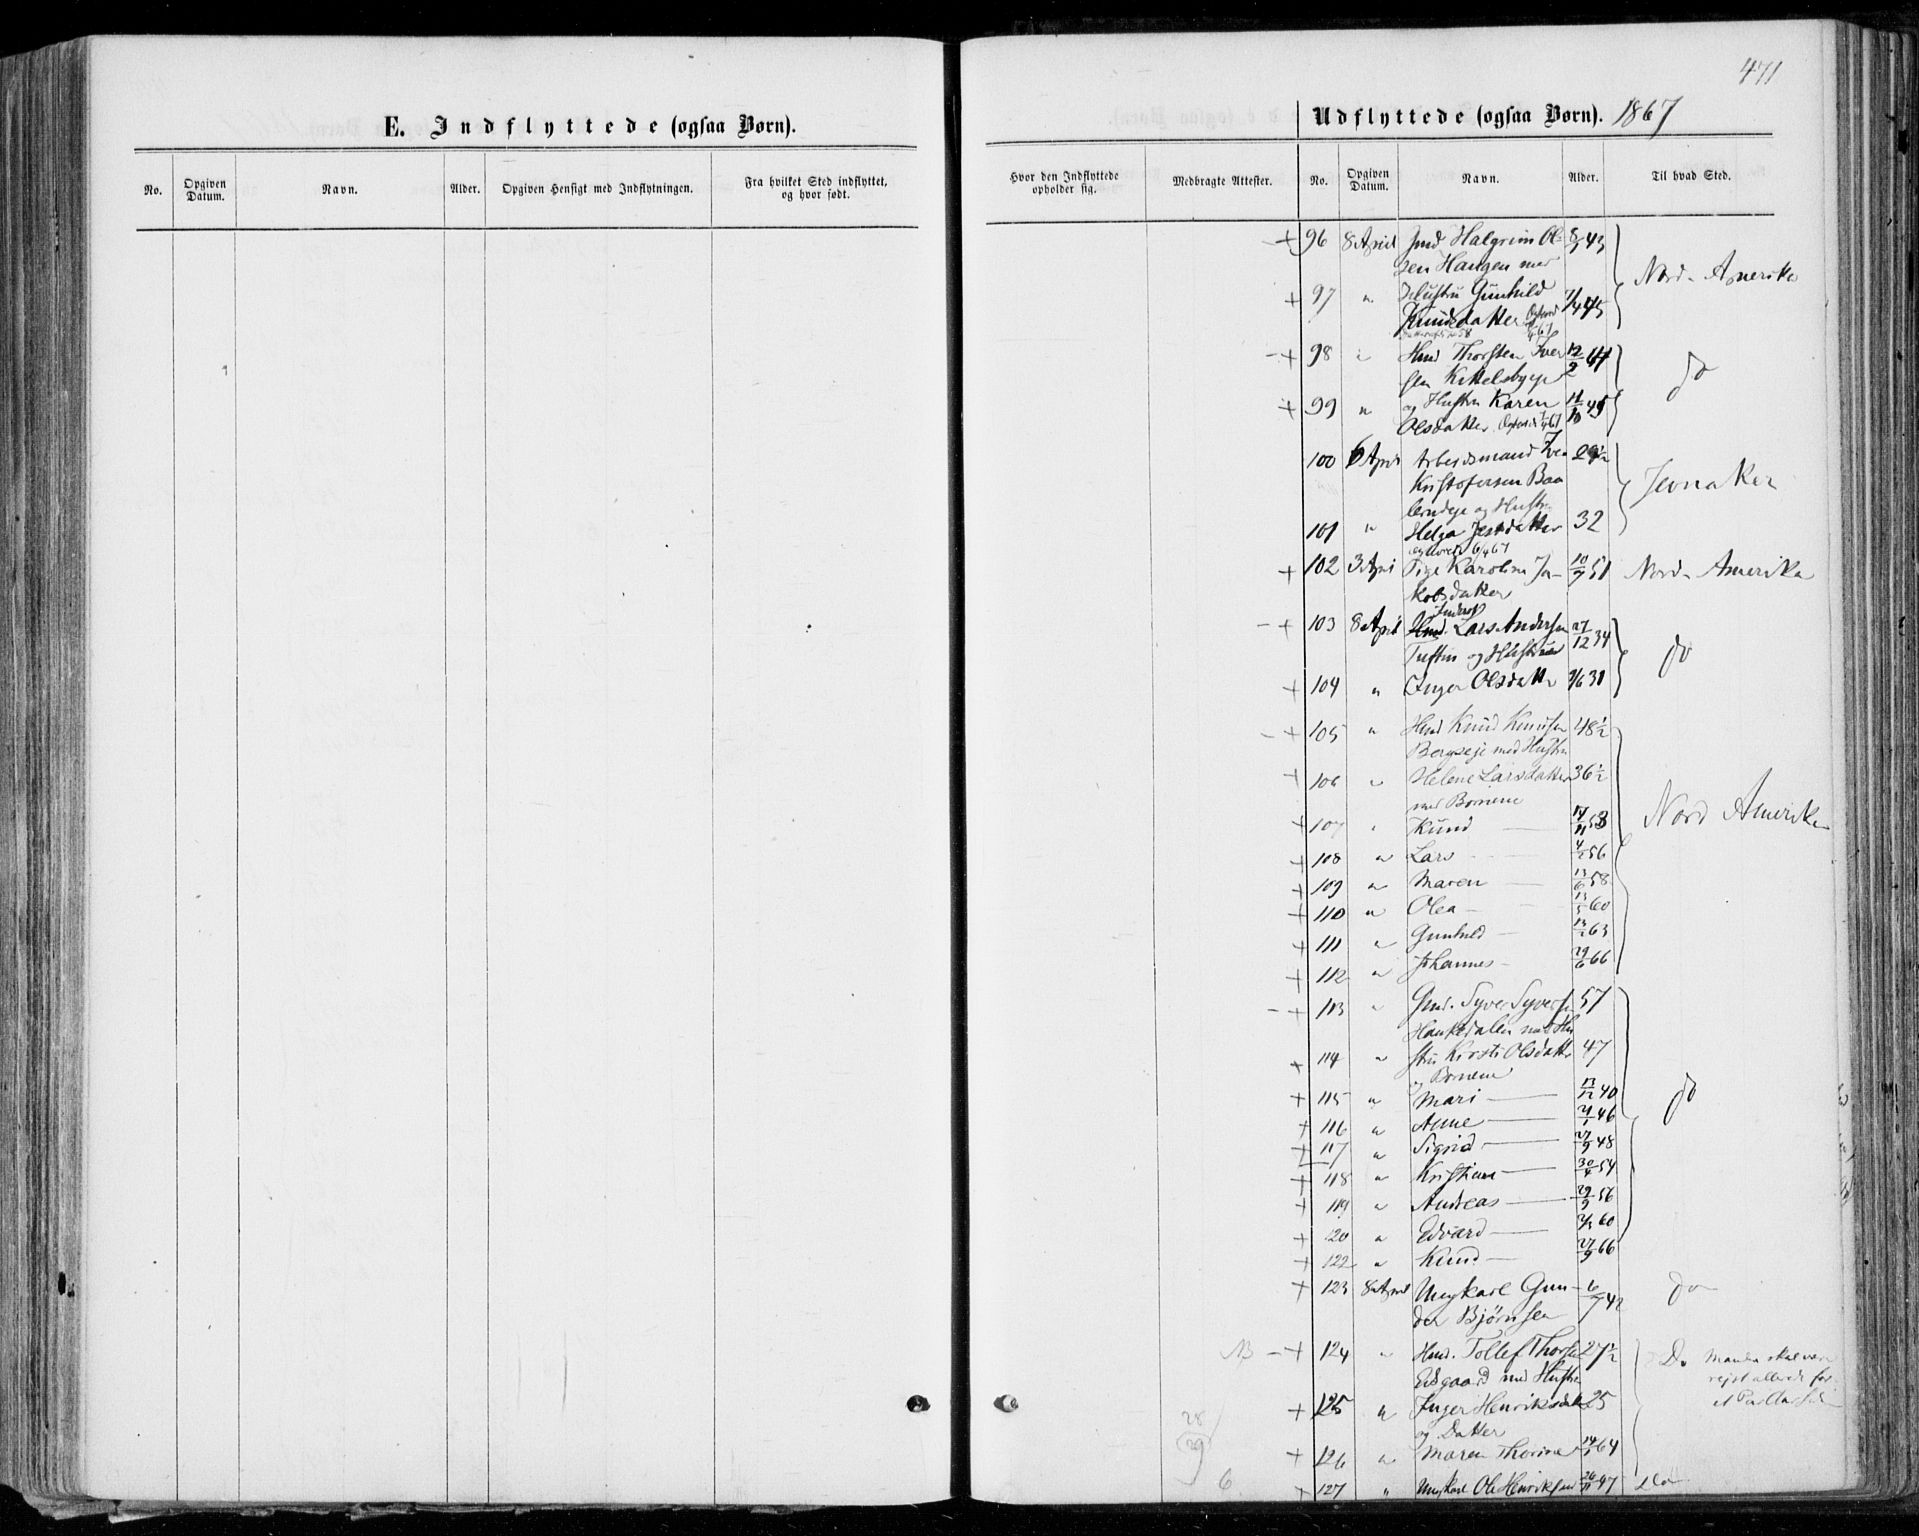 471
E. Indflyttede (ogsaa Børn).
No. Opgiven Datum. Navn. Alder. Opgiven Hensigt med Indflytningen. Fra hvilket Sted indflyttet, og hvor født.
Udflyttede (ogsaa Børn). 1867
Hvor den Indflyttede opholder sig. Medbragte Attester. No. Opgiven Datum. Navn. Alder. Til hvad Sted.
+ 96 8 April Halgrim Ol- 8/ 43
sen Haugen med Nord-Amerika
+ 97 " Hustru Gunhild 7/4 45
Knudsdatter
-+ 98 " Hmd Thorsten Iver 12/2 44
sen Kittelsbyeje do
+ 99 " og Hustru Karen 11/10 45
Olsdatter
100 6 April Arbeidsmand Iver 29 1/2
Kristofersen Jevnaker
og Hustru
101 " Helga 32
6/4 67
+ 102 3 Apri Pige Karoline Ja- 10/9 51 Nord-Amerika
kobsdatter
-+ 103 8 April Lars Andersen 27/12 34
og Hustru do
+ 104 " Inger Olsdatter 31
-+ 105 " Hmd Knud Knudsen 48 1/2
Bergseje med Hustru
+ 106 " Helene Larsdatter 36 1/2
med Børnene Nord Amerika
+ 107 " Knud — 17/11 53
+ 108 " Lars — 4/2 56
+ 109 " Maren — 13/6 58
+ 110 " Olea — 13/5 60
+ 111 " Gunhild — 13/2 63
+ 112 " Johannes — 29/6 66
-+ 113 " Gmd. Syver Syversen 57
Haukedalen med Hu
+ 114 " stru Kirsti Olsdatter 47
og Børnene
+ 115 " Mari — 13/12 40 do
+ 116 " Anne — 21/1 46
+ 117 " Sigrid — 27/9 48
+ 118 " Kristian — 30/4 54
+ 119 " Andreas — 29/9 56
+ 120 " Edvard — 60
+ 122 " Knud — 27/9 66
+ 123 8 April Ungkarl Gun- 6/7 42 do
der Bjørnsen
NB -+ 124 " Hmd. Tollef Thorsen 27 1/2 Do Manden skal være
Edsgaard med Hustru rejst allerede for
+ 125 " Inger Henriksdatter 25 et Par Aar siden
28 og Datter
29 + 126 " Maren Thorine 14/1 64
6 + 127 " Ungkarl Ole Henriksen 26/11 47 do